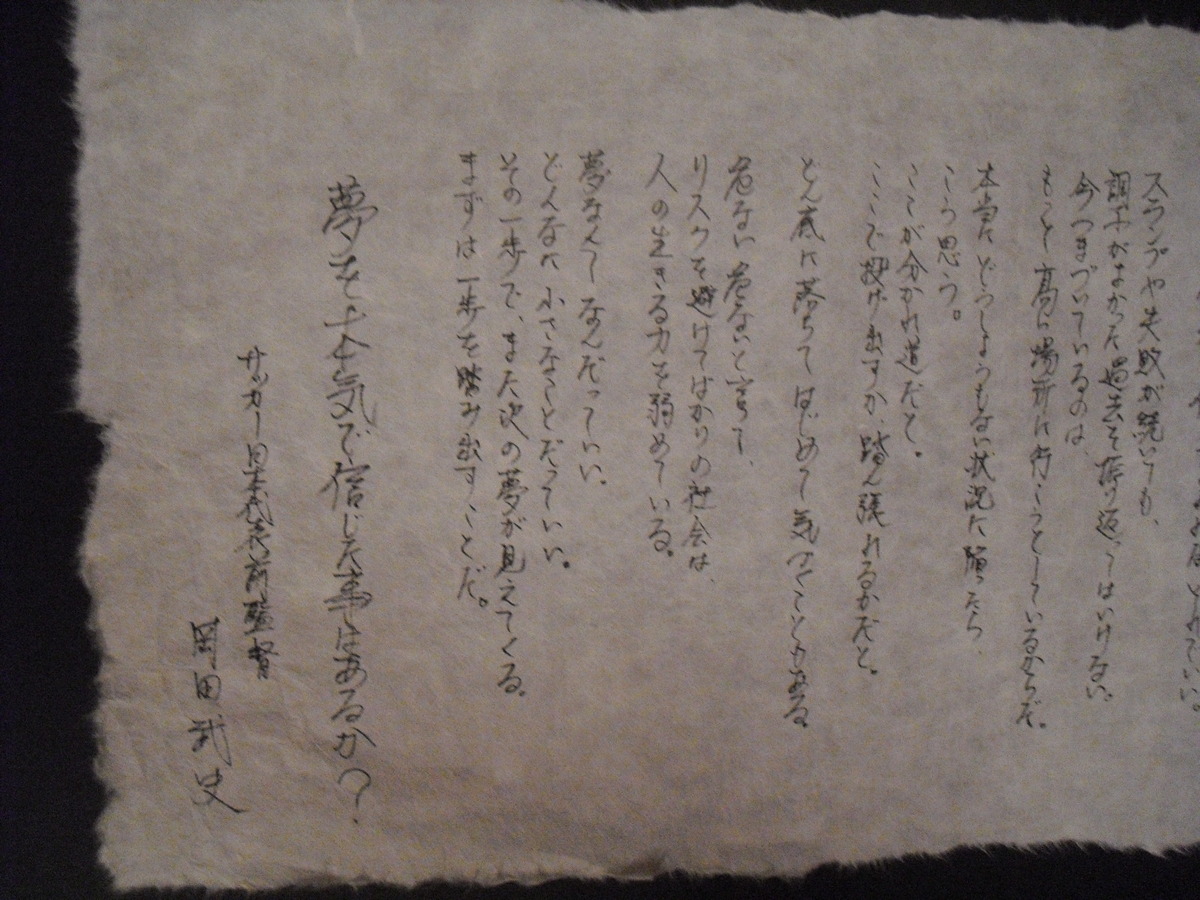 スランプや失敗が続いても、
調子がよかった過去を振り返ってはいけない。
今つまづいているのは、
もっと高い場所に行こうとしているからだ。
本当にどうしようもない状況に陥ったら、
こう思う。
ここが分かれ道だと。
ここで投げ出すか、踏ん張れるかだと。
どん底に落ちてはじめて気づくこともある。
危ない危ないと言って、
リスクを避けてばかりの社会は、
人の生きる力を弱めている。
夢なんてなんだっていい。
どんなに小さなことだっていい。
その一歩で、また次の夢が見えてくる。
まずは一歩を踏み出すことだ。
夢を本気で信じた事はあるか?
サッカー日本代表前監督
岡田武史